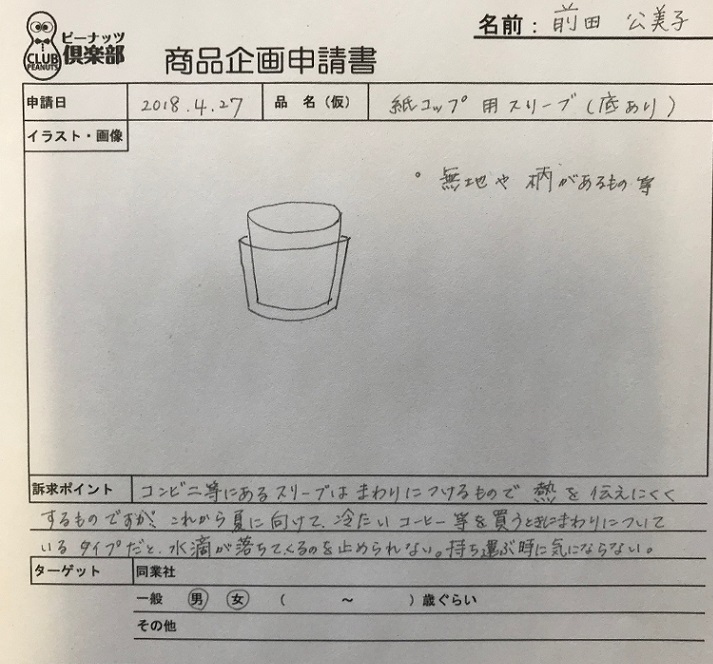 名前: 前田 公美子
ピーナッツ
倶楽部
CLUB
PEANUTS
商品企画申請書
申請日 2018.4.27 品 名(仮) 紙コップ 用スリーブ(底あり)
イラスト・画像
。無地や 柄があるもの 等
訴求ポイント コンビニ等にあるスリーブは まわりにつけるもので 熱を伝えにくく
するものですが、これから夏に向けて、冷たい コーヒー 等を買うときにまわりについて
いる タイプだと、水滴が落ちてくるのを止められない。持ち運ぶ時に気にならない。
ターゲット 同業社
一般 男 女 ( ～ )歳ぐらい
その他